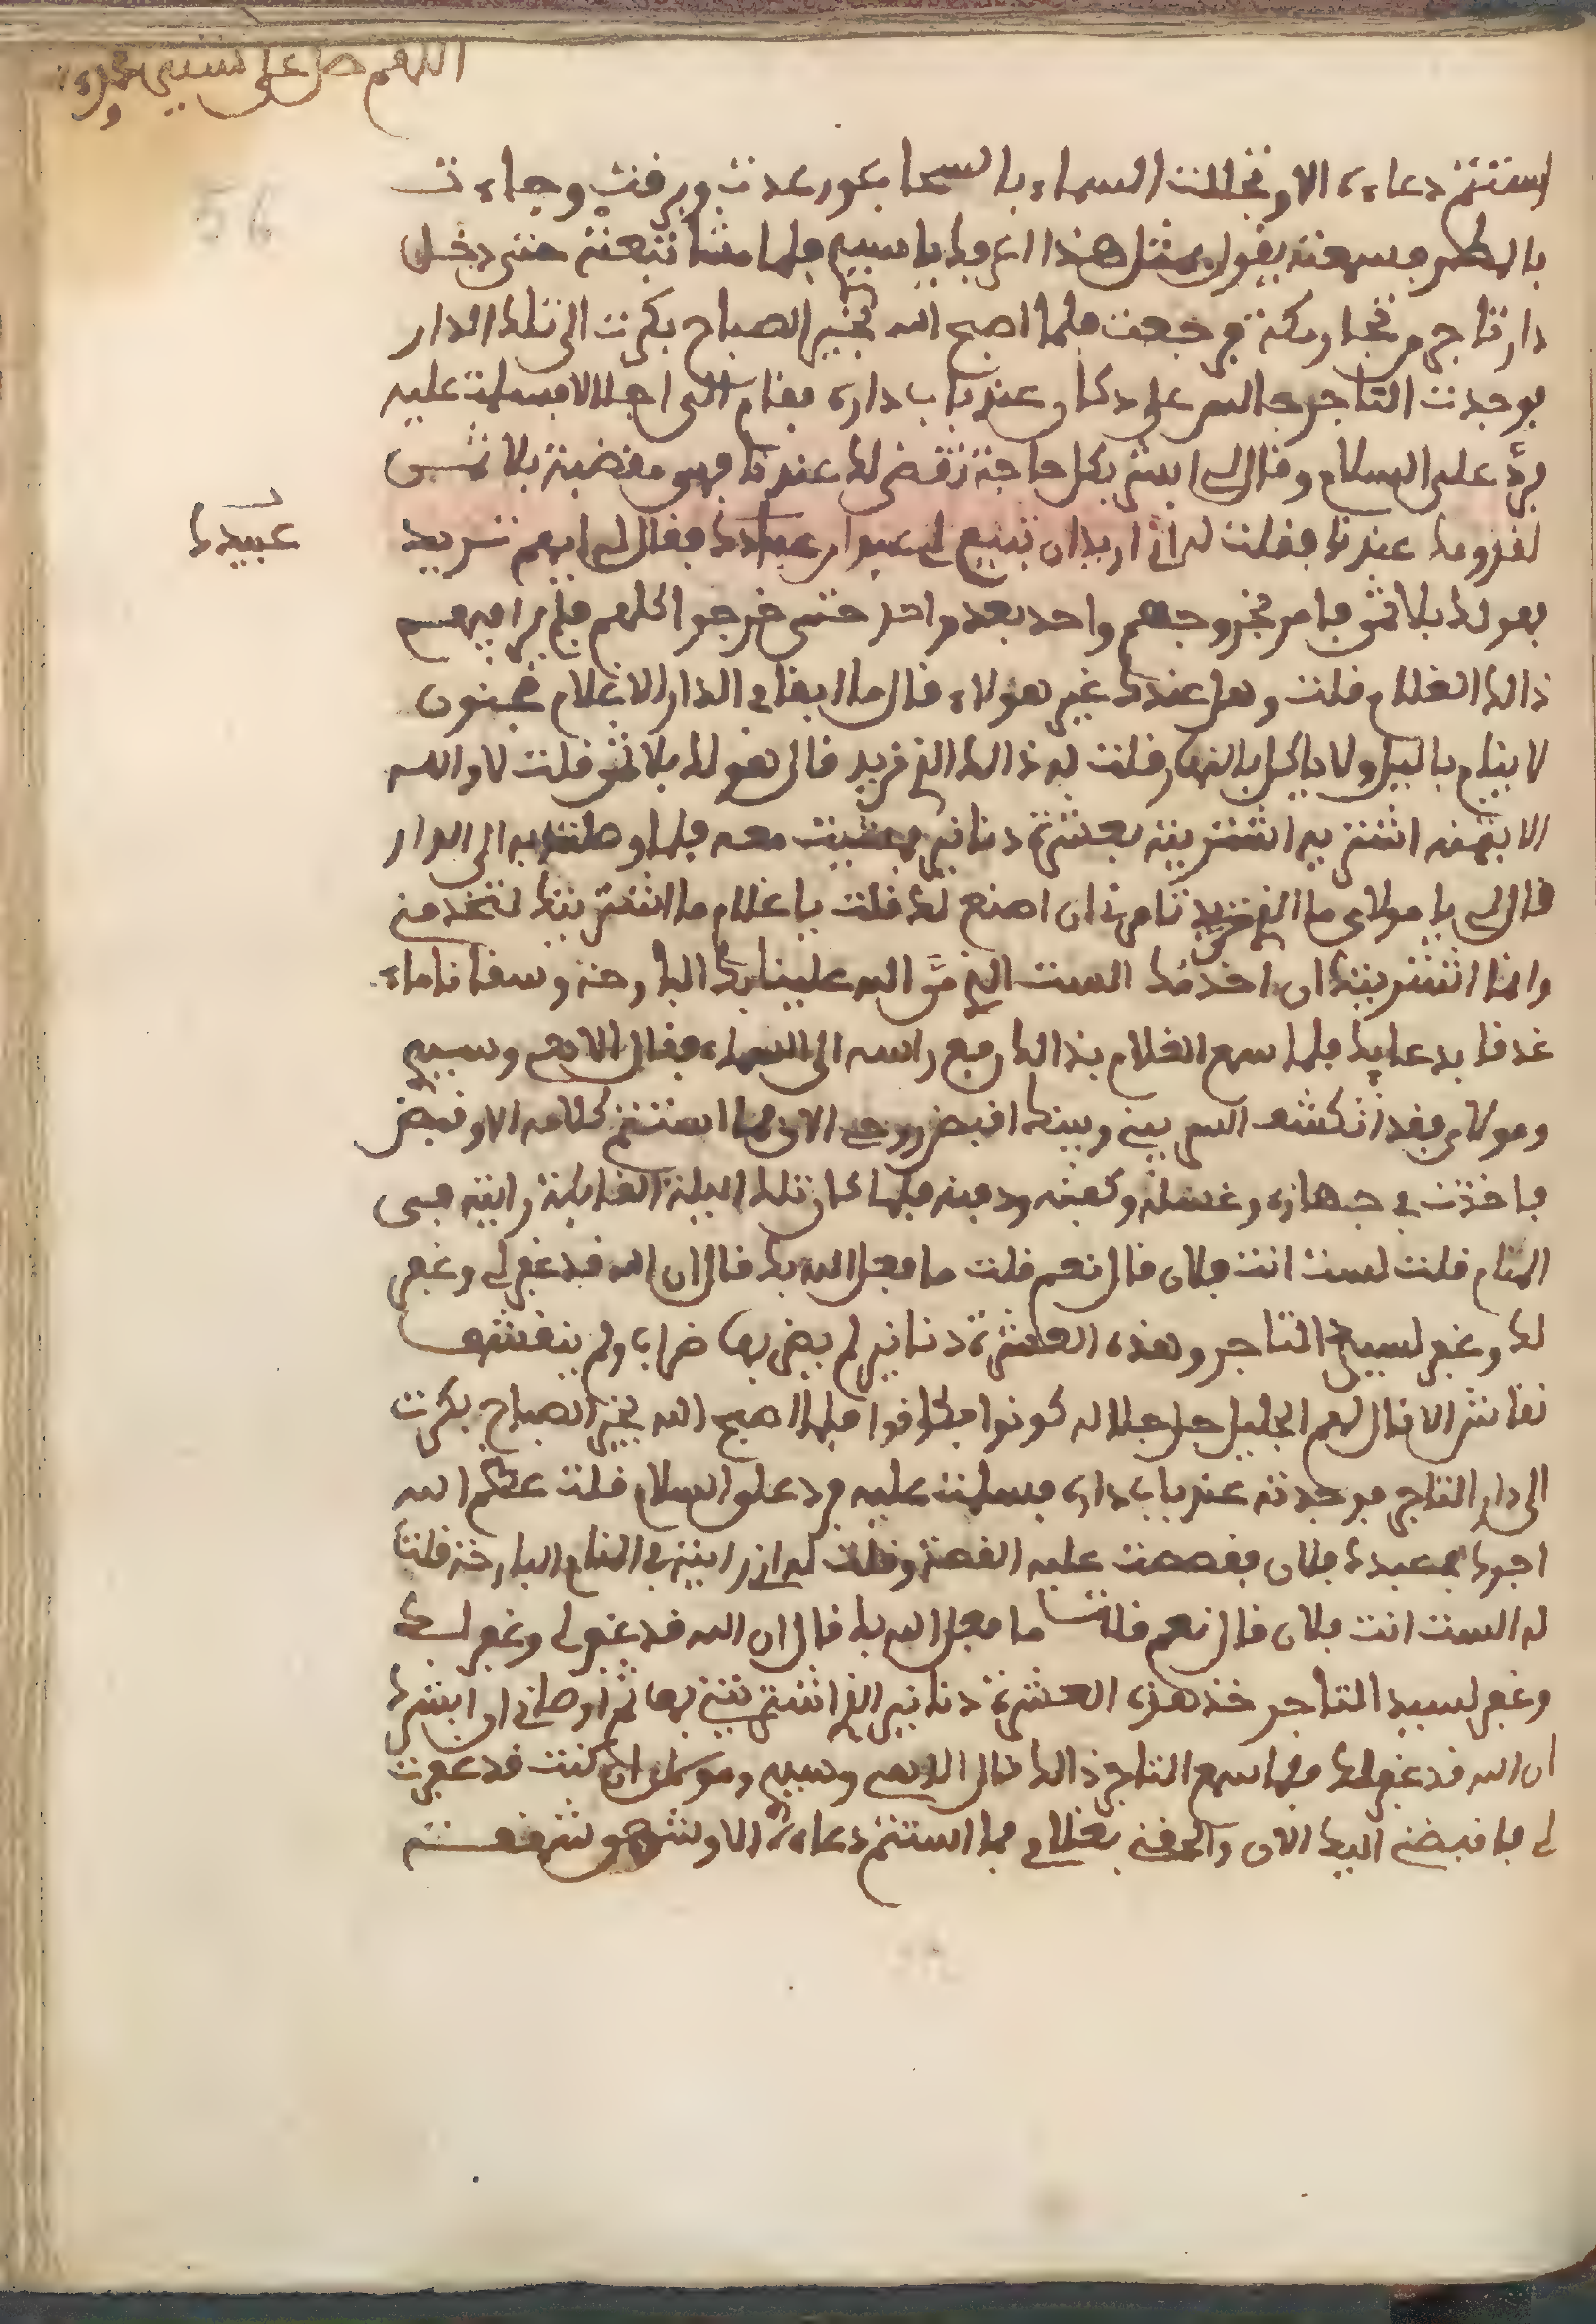 اللهم صل على سيدنا محمد و
56
استتم دعاءه الا وتخللت السماء بالسحاب ورعدت وبرقت وجاءت
بالمطر فسمعته يقول بمثل هذا اعرفك يا سيدي فلما مشا تبعته حتى دخل
دار تاجر من تجار مكة فرجعت فلما اصبح الله بخير الصباح بكرت الى تلك الدار
فوجدت التاجر جالس على دكان عند باب داره فقام الي اجلالا فسلمت عليه
فردَّ علي السلام وقال لي ابشر بكل حاجة تقضى لك عندنا فهي مقضية بلا شي
لقدومك عندنا فقلت له اني اريد ان تبيع لي عبدا من عبادك فقال لي ايهم تريد
عبيدك
فهو لك بلا ثمن فامر بخروجهم واحد بعد واحد حتى خرجوا كلهم فلم ير فيهم
ذالك الغلام قلت وهل عندك غير هولاء قال ما ابقا في الدار الا غلام مجنون
لا ينام بالليل ولا ياكل بالنهار قلت له ذالك الذي نريد قال هو لك بلا ثمن قلت لا والله
الا بثمنه اشتريه اشتريته بعشرة دنانير فمشيت معه فلما وصلت به الى الدار
قال لي يا مولاي ما الذي تريد تامرني ان اصنع لك قلت يا غلام ما اشتريتك لتخدمني
وانما اشتريتك ان اخدمك الست الذي منَّ الله علينا بك البارحة وسقانا ماء
غدقا بدعايك فلما سمع الغلام بذالك رفع راسه الى السماء فقال الاهي وسيدي
ومولاي فقد انكشف السر بيني وبينك اقبض روحي الان فما استتم كلامه الا وقبض
فاخذت في جهازه وغسلته وكفنته ودفنته فلما كان تلك الليلة القابلة رايته في
المنام قلت لست انت فلان قال نعم قلت ما فعل الله بك قال ان الله قد غفر لي وغفر
لك وغفر لسيدي التاجر وهذه العشرة دنانير لم يضربها ضراب ولم ينقشها
نقاش الا قال لهم الجليل جل جلاله كونوا فكانوا فلما اصبح الله بخير الصباح بكرت
الى دار التاجر فوجدته عند باب داره فسلمت عليه فرد علي السلام قلت عظم الله
اجرك في عبدك فلان فقصصت عليه القصة وقلت له اني رايته في المنام البارحة قلت
له الست انت فلان قال نعم قلت ما فعل الله بك قال ان الله قد غفر لي وغفر لك
وغفر لسيد التاجر خذ هذه العشرة دنانير الذي اشتريتني بها ثم اوصاني ان ابشرك
ان الله قد غفر لك فلما سمع التاجر ذالك قال الاهي وسيدي ومولاي ان كنت قد غفرت
لي فاقبضني اليك الان والحقني بغلامي فما استتم دعاءه الا وشهق شهقة